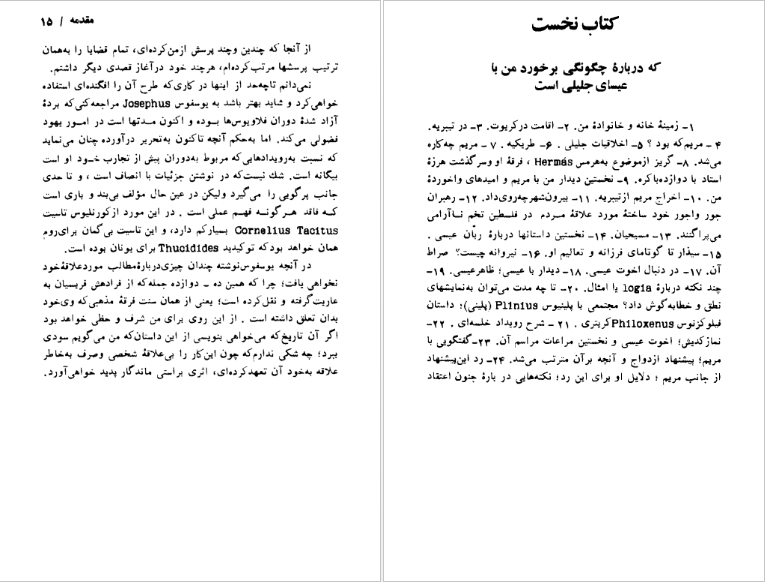 مقدمه / ۱۵
از آنجا که چندین وچند پرسش ازمن‌کرده‌ای، تمام قضایا را به‌همان
ترتیب پرسشها مرتب‌کرده‌ام، هرچند خود درآغاز قصدی دیگر داشتم.
نمی‌دانم تاچه‌حد از اینها در کاری‌که طرح آن را افگنده‌ای استفاده
خواهی‌کرد و شاید بهتر باشد به یوسفوس Josephus مراجعه‌کنی‌که بردهٔ
آزاد شدهٔ دوران فلاویوس‌ها بوده و اکنون مدتها است در امور یهود
فضولی می‌کند. اما به‌حکم آنچه تاکنون به‌تحریر درآورده چنان می‌نماید
که نسبت به‌رویدادهایی‌که مربوط به‌دوران پیش از تجارب خود او است
بیگانه است. شك نیست‌که در نوشتن جزئیات با انصاف است ، و تا حدی
جانب پرگویی را می‌گیرد ولیکن در عین حال مؤلف بی‌پند و باری است
که فاقد هرگونه فهم عملی است . در این مورد ازکورنلیوس تاسیت
Cornelius Tacitus بسیارکم دارد، و این تاسیت بی‌گمان برای‌روم
همان خواهد بودکه توکیدید Thucidides برای یونان بوده است.
در آنچه یوسفوس‌نوشته چندان چیزی‌دربارهٔ‌مطالب موردعلاقهٔ‌خود
نخواهی یافت؛ چرا که همین ده ـ دوازده جمله‌که از فرادهش فریسیان به
عاریت‌گرفته و نقل‌کرده است؛ یعنی از همان سنت فرقهٔ مذهبی‌که وی‌خود
بدان تعلق داشته است . از این روی برای من شرف و حظی خواهد بود
اگر آن تاریخ‌که می‌خواهی بنویسی از این داستان‌که من می‌گویم سودی
ببرد؛ چه شکی ندارم‌که چون این‌کار را بی‌علاقهٔ شخصی وصرف به‌خاطر
علاقه به‌خود آن تعهدکرده‌ای، اثری براستی ماندگار پدید خواهی‌آورد.
کتاب نخست
که دربارهٔ چگونگی برخورد من با
عیسای جلیلی است
۱ـ زمینهٔ خانه و خانوادهٔ من. ۲ـ اقامت درکریوت. ۳ـ در تیبریه.
۴ ـ مریم‌که بود ؟ ۵ـ اخلاقیات جلیلی . ۶ـ طریکیه . ۷ ـ مریم چه‌کاره
می‌شد. ۸ـ گریز ازموضوع به‌هرمس Hermás ، فرقهٔ او وسرگذشت هرزهٔ
استاد با دوازده‌باکره. ۹ـ نخستین دیدار من با مریم و امیدهای واخوردهٔ
من. ۱۰ـ اخراج مریم ازتیبریه. ۱۱ـ بیرون‌شهرچه‌روی‌داد. ۱۲ـ رهبران
جور واجور خود ساختهٔ مورد علاقهٔ مردم در فلسطین تخم ناآرامی
می‌پراگنند. ۱۳ـ مسیحیان. ۱۴ـ نخستین داستانها دربارهٔ ربّان عیسی .
۱۵ـ سیذار تا گوتامای فرزانه و تعالیم او. ۱۶ـ نیروانه چیست؟ صراط
آن. ۱۷ـ در دنبال اخوت عیسی. ۱۸ـ دیدار با عیسی؛ ظاهرعیسی. ۱۹ـ
چند نکته دربارهٔ logia یا امثال. ۲۰ـ تا چه مدت می‌توان به‌نمایشهای
نطق و خطابه‌گوش داد؟ مجتمعی با پلینیوس Plinius (پلینی)؛ داستان
فیلوکزنوس Philoxenusکریتری . ۲۱ ـ شرح رویداد خلسه‌ای . ۲۲ـ
نمازکدیش؛ اخوت عیسی و نخستین مراعات مراسم آن. ۲۳ـگفتگویی با
مریم؛ پیشنهاد ازدواج و آنچه برآن مترتب می‌شد. ۲۴ـ رد این‌پیشنهاد
از جانب مریم ؛ دلایل او برای این رد؛ نکته‌هایی در بارهٔ جنون اعتقاد